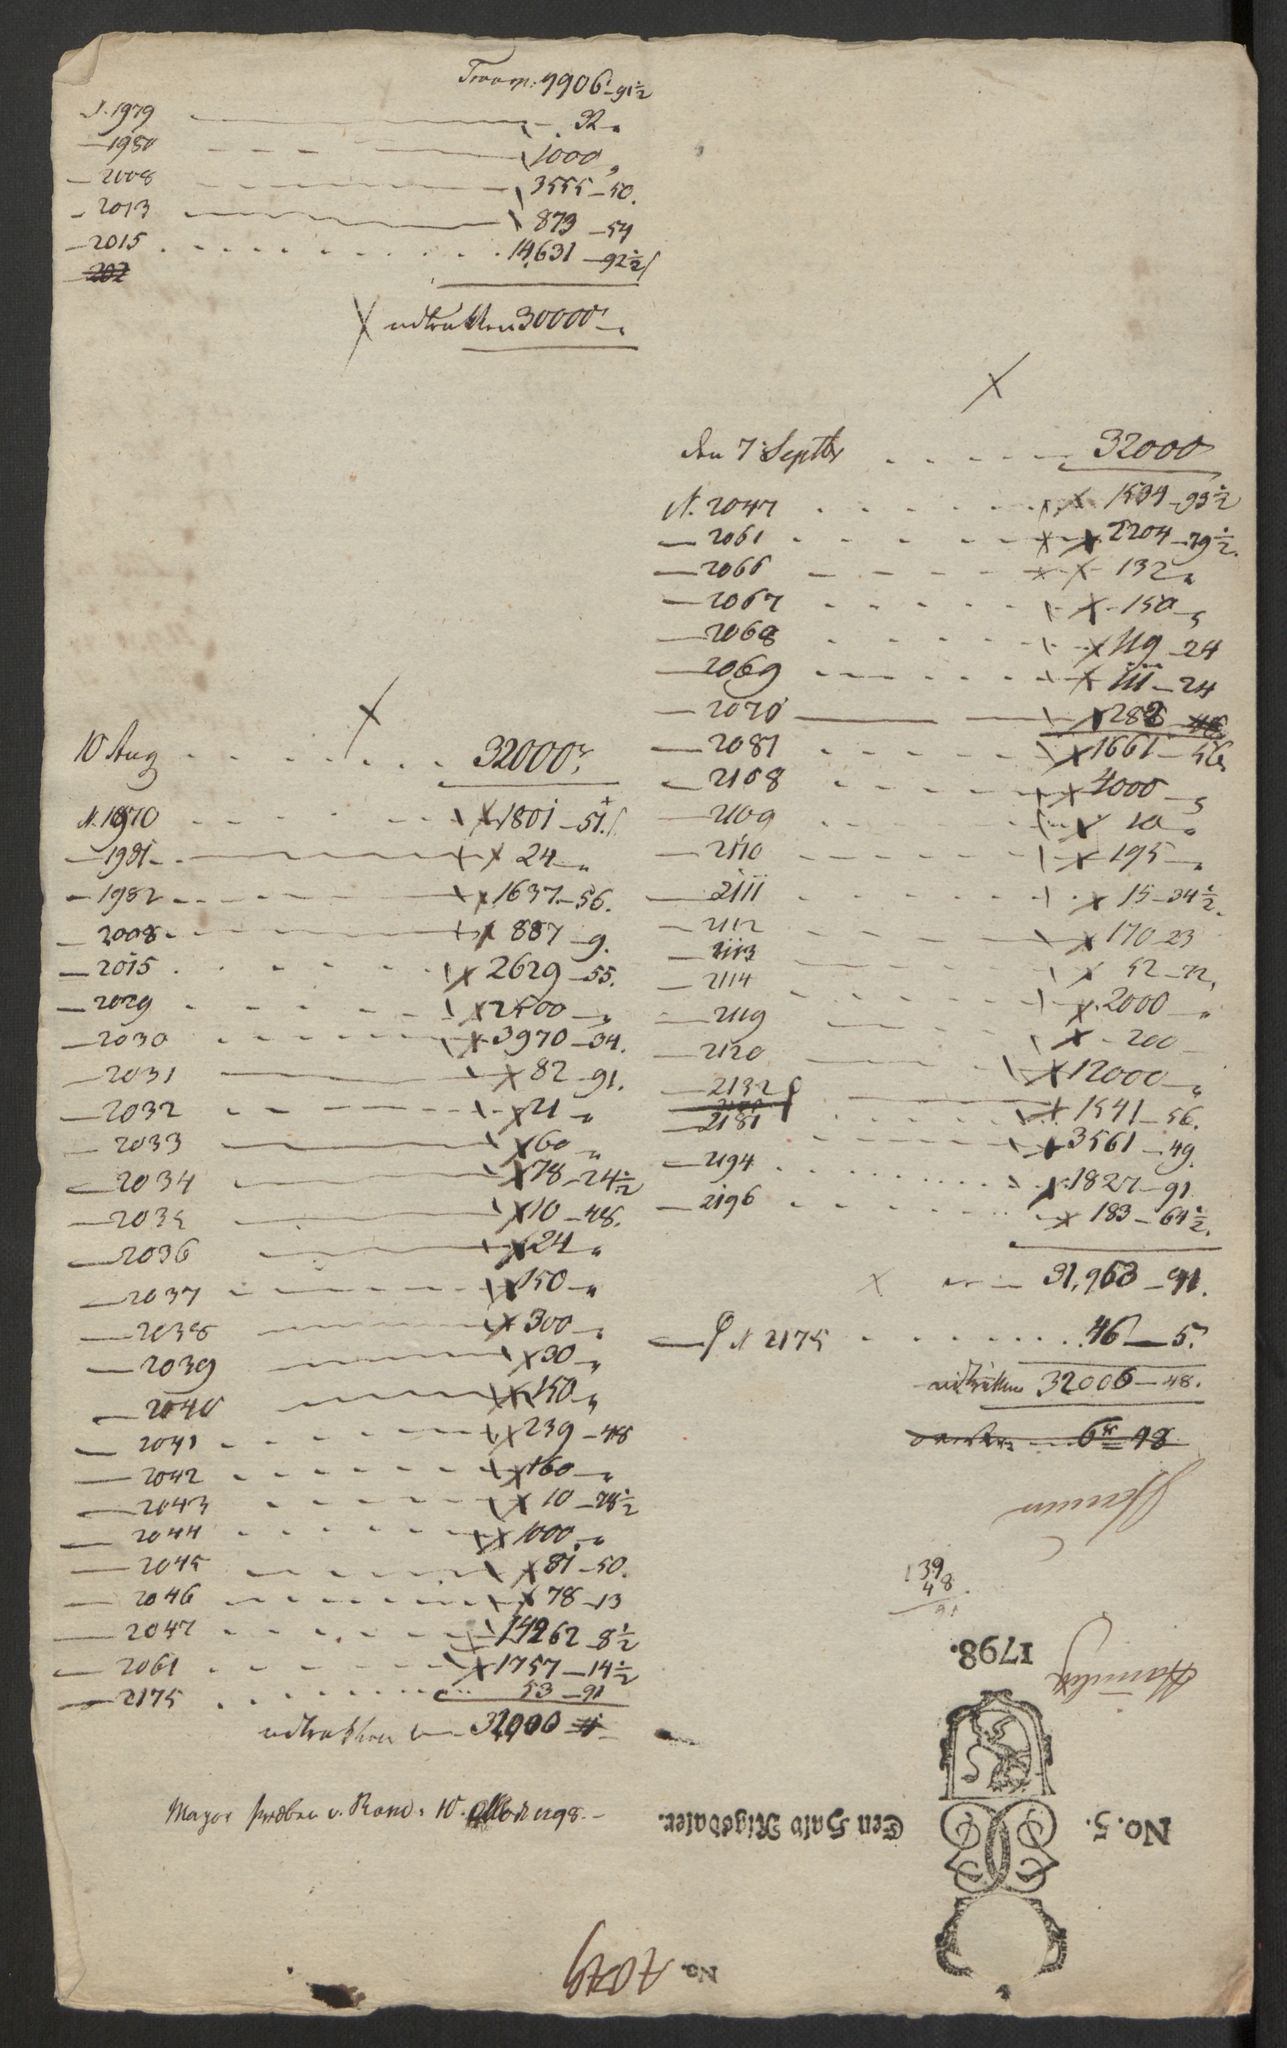 Transp: 9906 – 91½
N. 1979 32 „
— 1980 1000 „
— 2008 3555 – 50.
— 2013 873 – 54
— 2015 14,631 – 92½
— 202
X udtrukken 30000 –
X
10 Aug 32000
N. 1970 X 1801 – 51.
— 1981 X 24 „
— 1982 X 1637 – 56.
— 2008 X 887 – 9.
— 2015 X 2629 – 55.
— 2029 X 2500 – „
— 2030 X 3970 – 34.
— 2031 X 82 – 91.
— 2032 X 21 „
— 2033 X 60 „
— 2034 X 78 – 24½
— 2035 X 10 – 48.
— 2036 X 24 „
— 2037 X 150 – „
— 2038 X 300 – „
— 2039 X 30 „
— 2040 X 150 „
— 2041 X 239 – 48
— 2042 X 160 – „
— 2043 X 10 – 78½
— 2044 X 1000 „
— 2045 X 81 – 50.
— 2046 X 78 – 13
— 2047 14262 – 8½
— 2061 X 1757 – 14½
— 2175 53 – 91
udtrukken 32000
X
den 7 Septbr 32000
N. 2047 X 1534 – 93½
— 2061 X 2204 – 79½.
— 2066 X 132 „
— 2067 X 150 „
— 2068 X 119 – 24
— 2069 X 111 – 24
— 2070 X 282 – 48
— 2081 X 1661 – 56
— 2108 X 4000 – „
— 2109 X 10 „
— 2110 X 195 – „
— 2111 X 15 – 34½.
— 2112 X 170 – 23
— 2113 X 52 – 72,
— 2114 X 2000 – „
— 2119 X 200 –
— 2120 X 12000 – „
— 2132 X 1541 – 56.
— 2181 X 3561 – 49.
— 2194 X 1827 – 91
— 2196 X 183 – 64½.
X er — 31,963 – 91.
N 2175 46 – 5.
udtrukken 32006 – 48.
6 48
139
48
91
1798.
No. 5.
Een Halv Rigsdaler.
Mayor v. 10 1798. –
No.